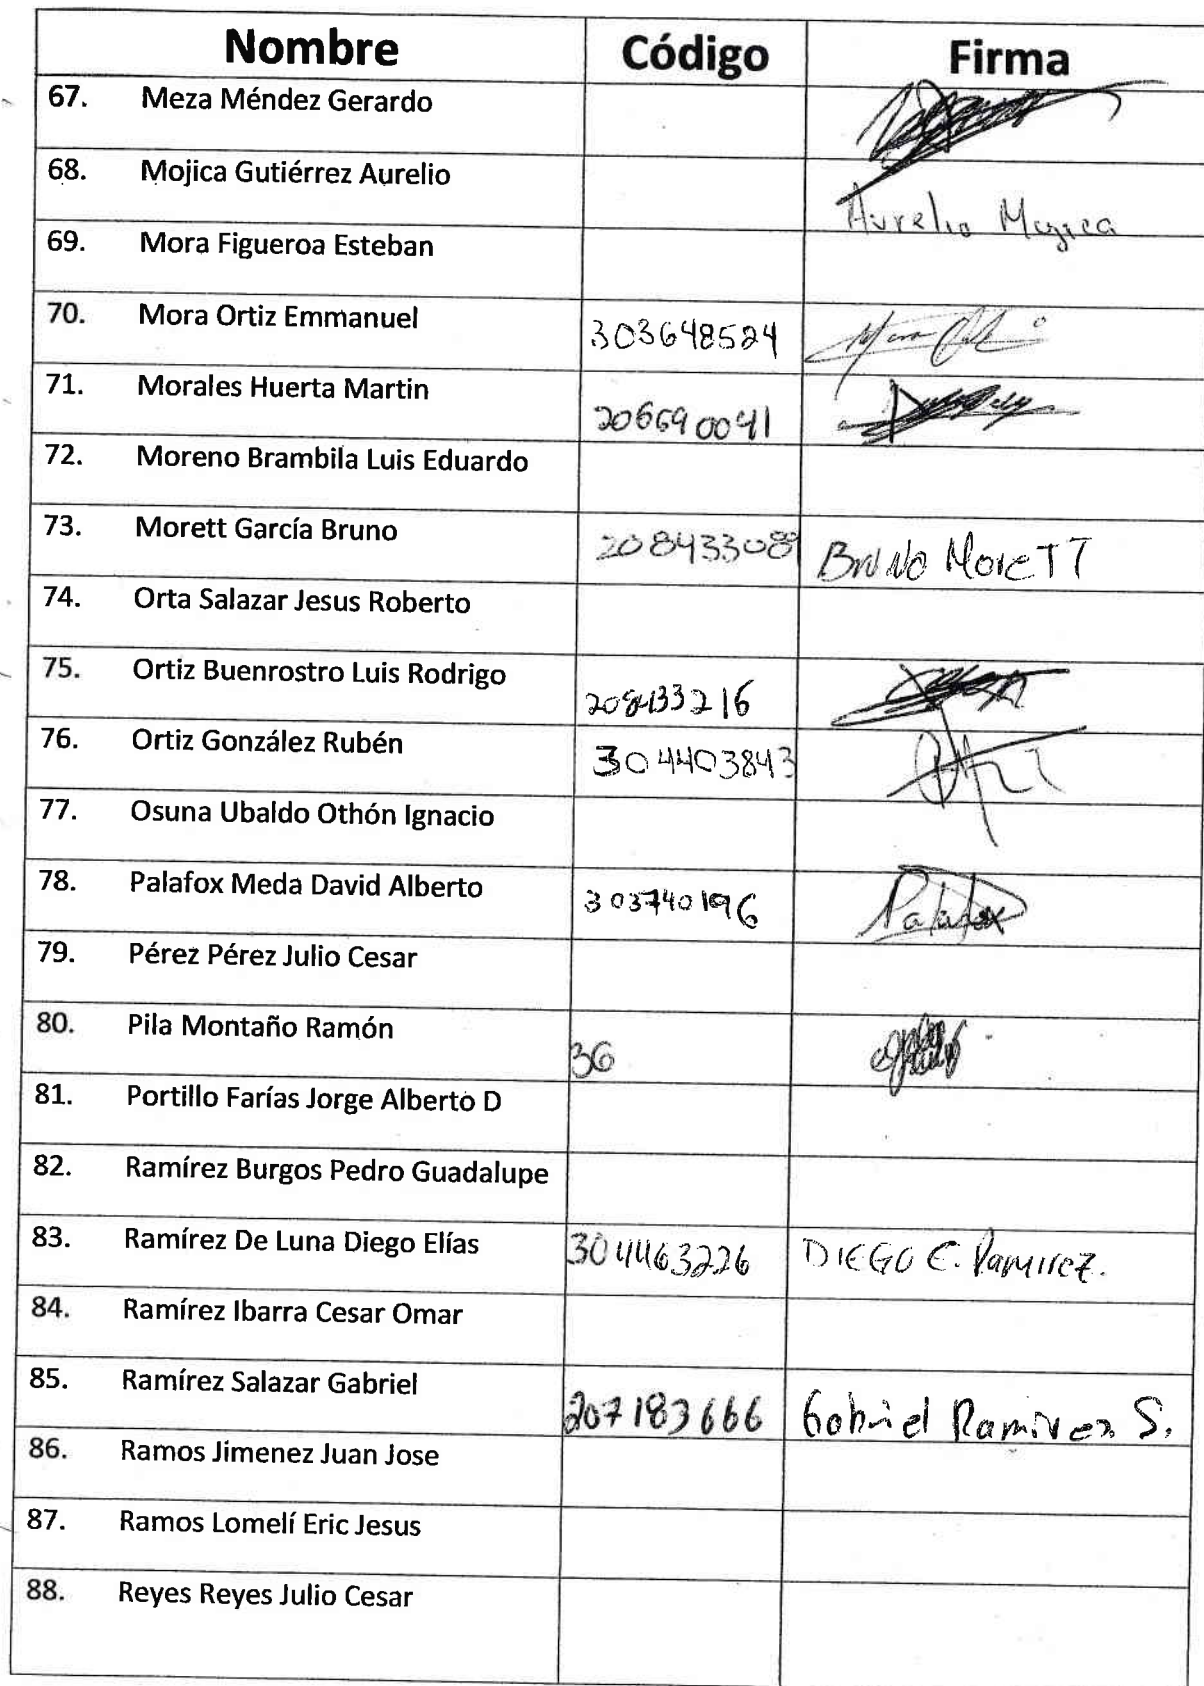 Nombre Código Firma
67. Meza Méndez Gerardo
68. Mojica Gutiérrez Aurelio Aurelio Mojica
69. Mora Figueroa Esteban
70. Mora Ortiz Emmanuel 303648524
71. Morales Huerta Martin 206690041
72. Moreno Brambila Luis Eduardo
73. Morett García Bruno 208433089 Bruno Morett
74. Orta Salazar Jesus Roberto
75. Ortiz Buenrostro Luis Rodrigo 208433216
76. Ortiz González Rubén 304403843
77. Osuna Ubaldo Othón Ignacio
78. Palafox Meda David Alberto 303740196 Palafox
79. Pérez Pérez Julio Cesar
80. Pila Montaño Ramón 36
81. Portillo Farías Jorge Alberto D
82. Ramírez Burgos Pedro Guadalupe
83. Ramírez De Luna Diego Elías 304463226 DIEGO E. Ramirez.
84. Ramírez Ibarra Cesar Omar
85. Ramírez Salazar Gabriel 207183666 Gabriel Ramirez S.
86. Ramos Jimenez Juan Jose
87. Ramos Lomelí Eric Jesus
88. Reyes Reyes Julio Cesar